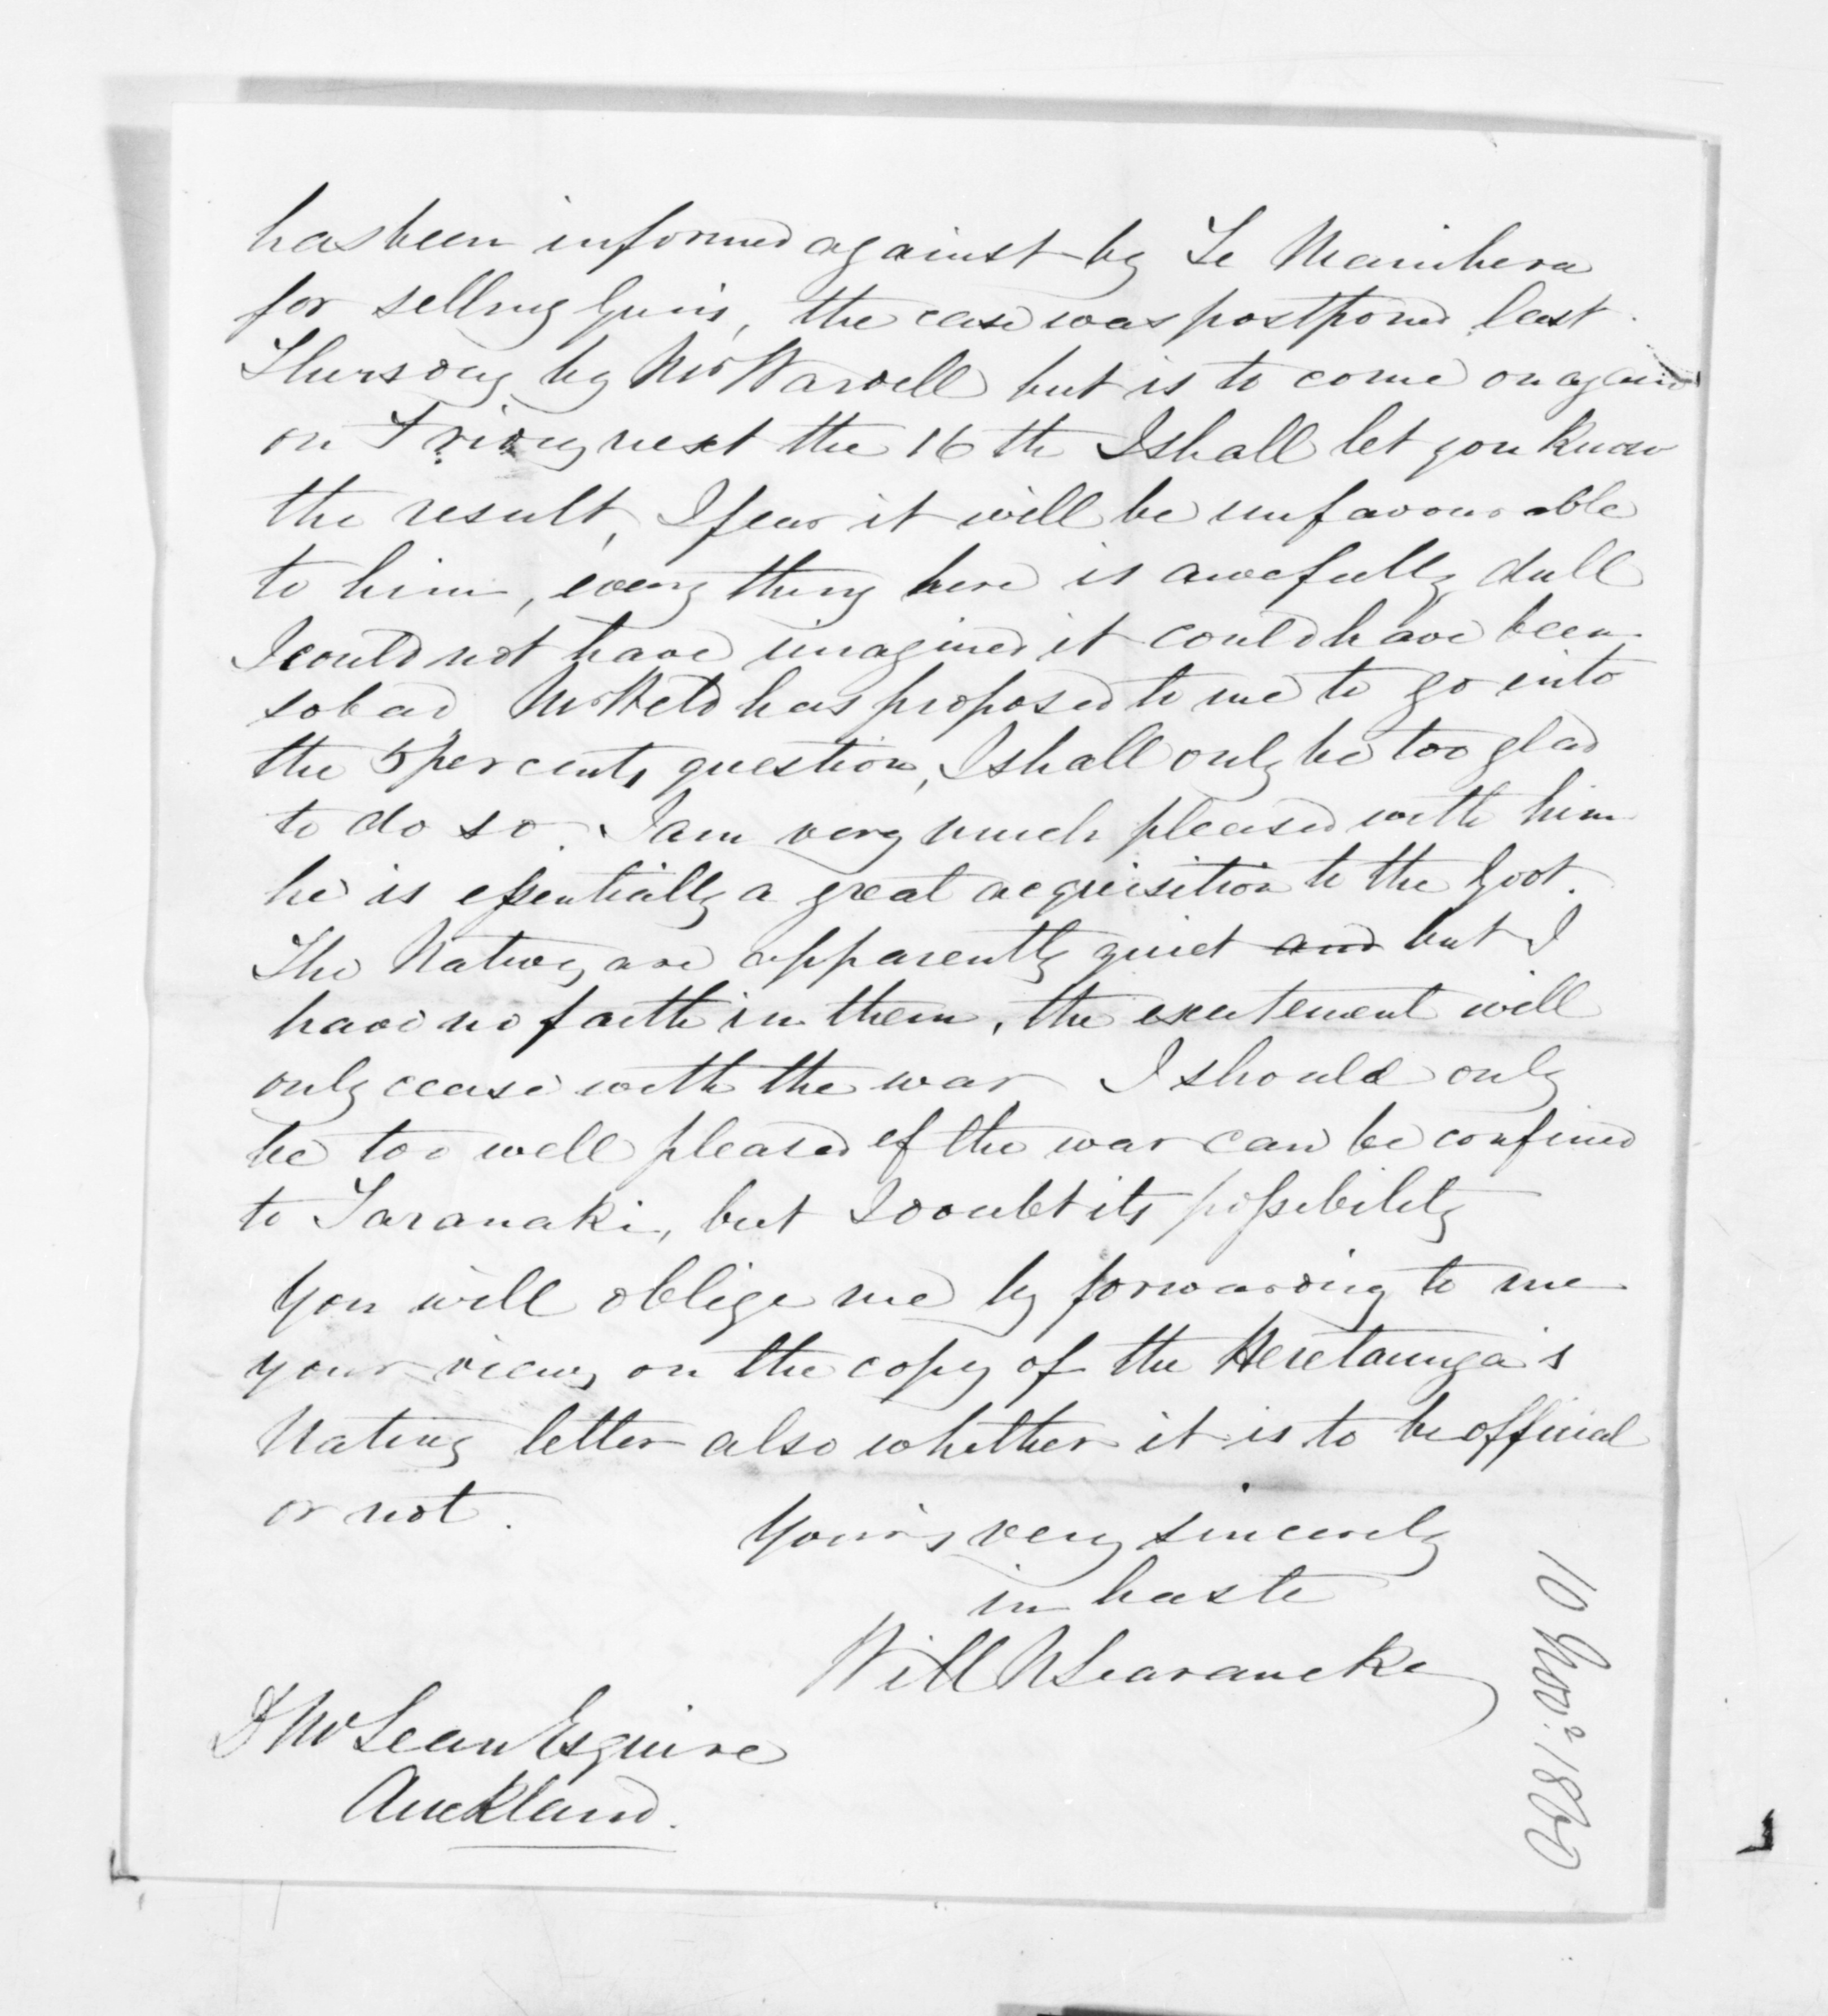 has been informed against by Te Manihera
for selling Guns, the case was postponed last
Thursday by Mr Wardell but is to come on again
on Friday next the 16th I shall let you know
the result, I fear it will be unfavourable
to him, every thing here is awefully dull
I could not have imagined it could have been
so bad Mr Weld has proposed to me to go into
the 5 per cents question, I shall only be too glad
to do so. I am very much pleased with him
he is essentially a great acquisition to the Govt.
The Natives are apparently quiet and but I
have no faith in them, the excitement will
only cease with the war I should only
be too well pleased if the war can be confined
to Taranaki, but I doubt its possibility
You will oblige me by forwarding to me
your views on the copy of the Heretaunga's
Natives letter also whether it is to be official
or not.
Yours very sincerely
in haste
Will N Searancke
D McLean Esquire
Auckland.
10 Novr. 1860